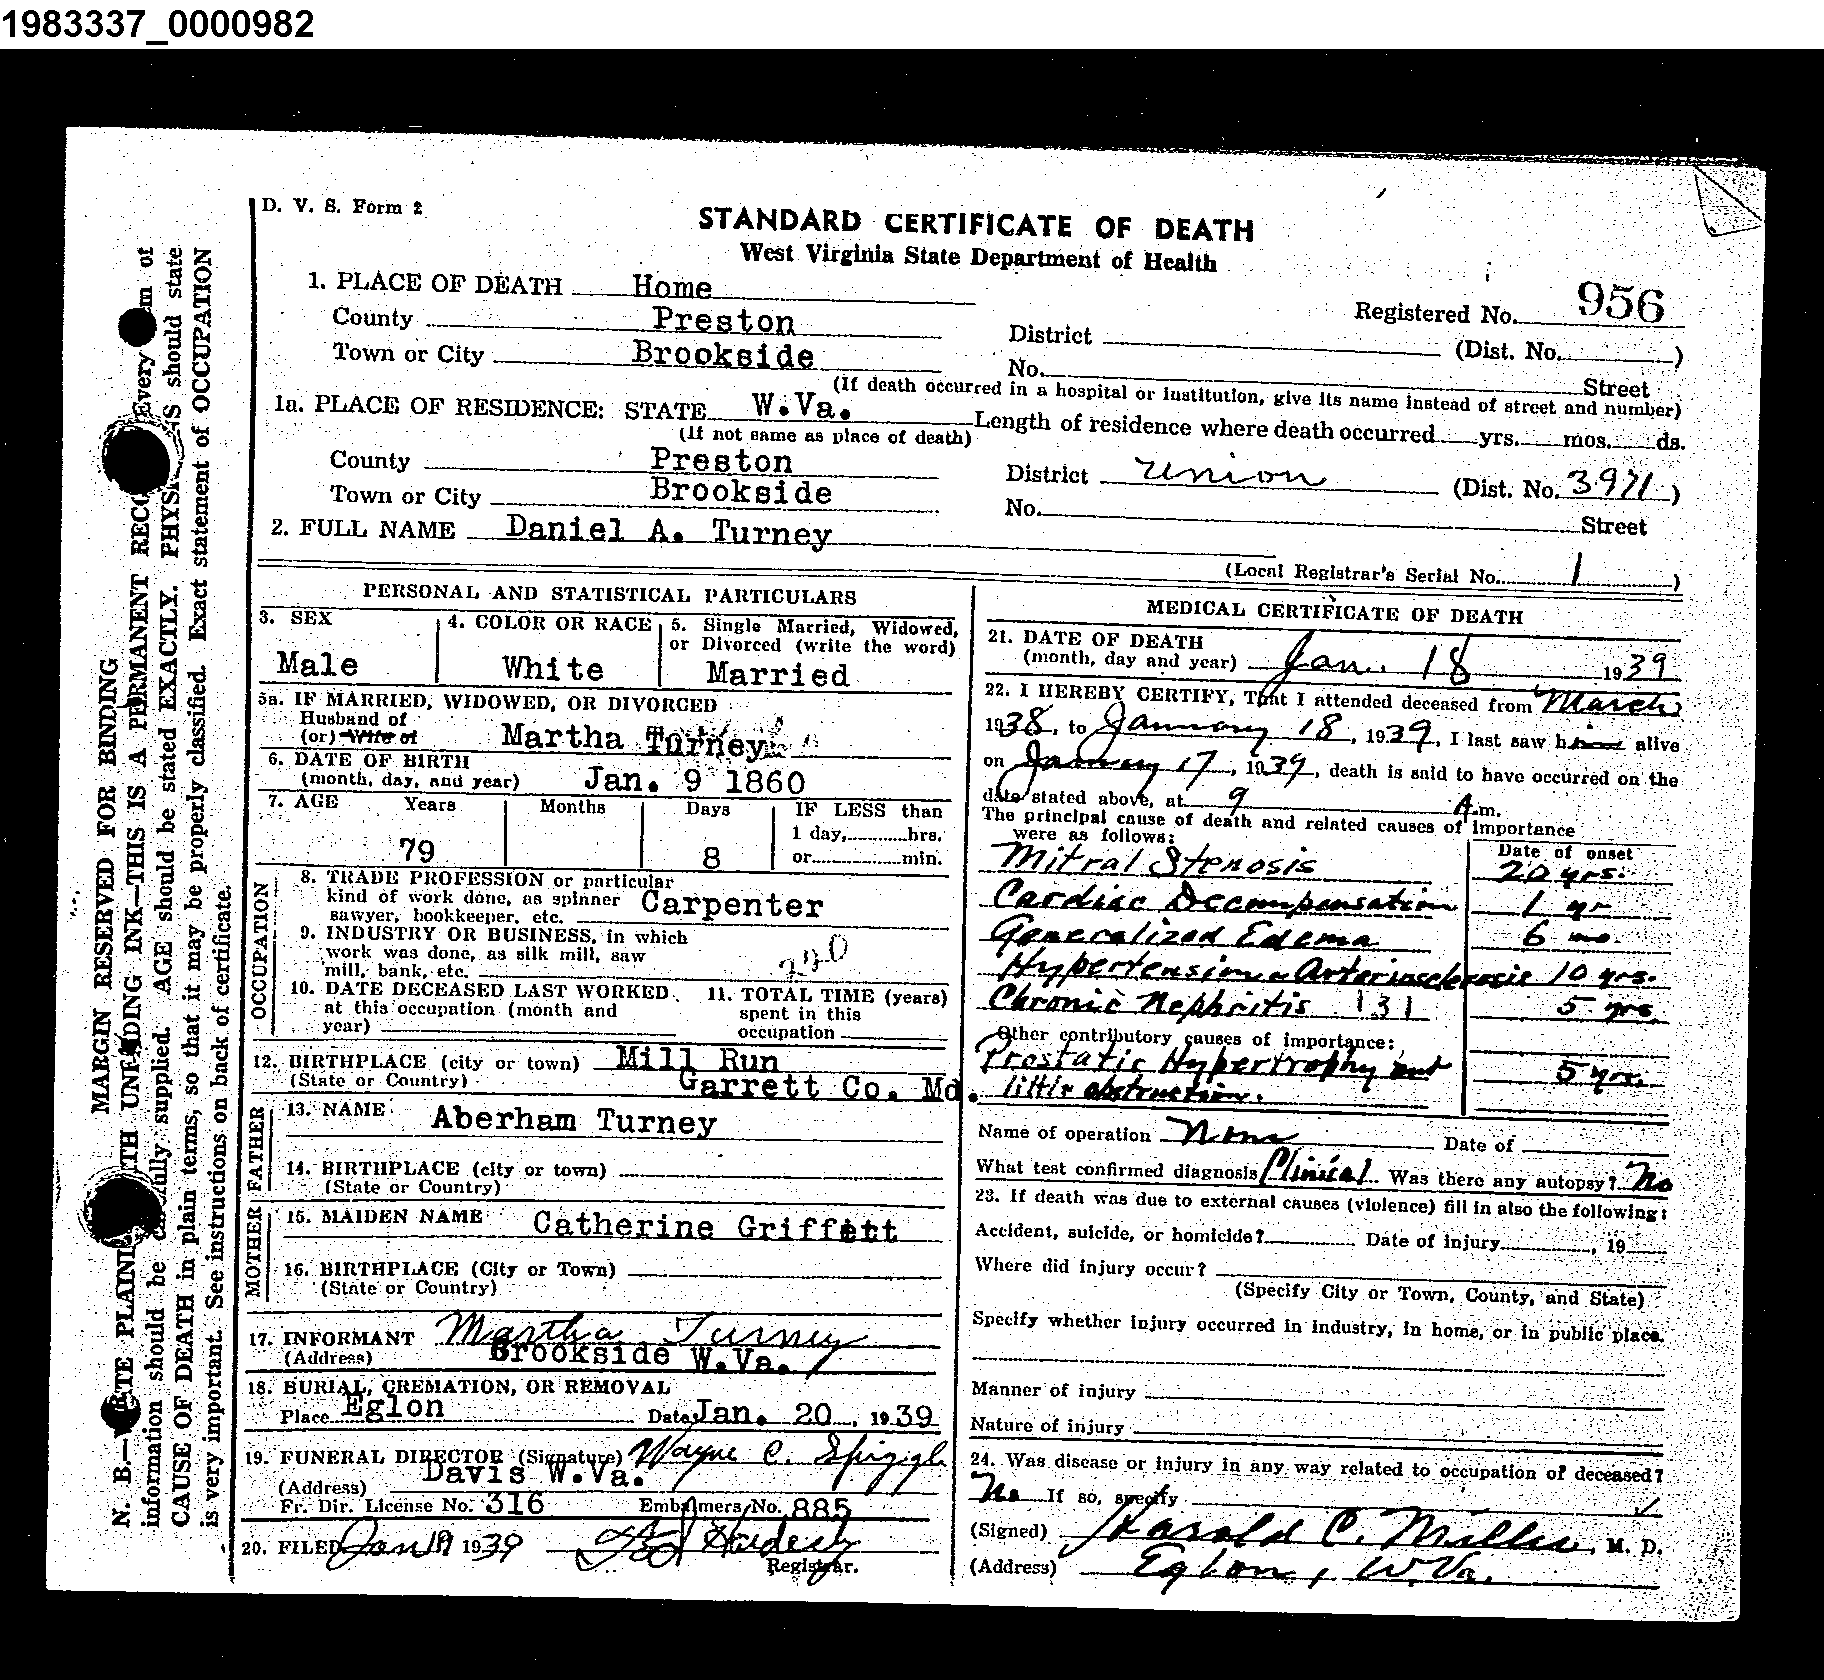 1983337_0000982
D. V. S. Form 2
STANDARD CERTIFICATE OF DEATH
West Virginia State Department of Health
1. PLACE OF DEATH Home
Registered No. 956
County Preston
District (Dist. No. )
Town or City Brookside
No. Street
(If death occurred in a hospital or institution, give its name instead of street and number)
1a. PLACE OF RESIDENCE: STATE W.Va.
(If not same as place of death)
Length of residence where death occurred yrs. mos. ds.
County Preston
District Union (Dist. No. 3971)
Town or City Brookside
No. Street
2. FULL NAME Daniel A. Turney
(Local Registrar's Serial No. 1 )
PERSONAL AND STATISTICAL PARTICULARS
3. SEX
Male
4. COLOR OR RACE
White
5. Single Married, Widowed,
or Divorced (write the word)
Married
5a. IF MARRIED, WIDOWED, OR DIVORCED
Husband of
(or) Wife of Martha Turney
6. DATE OF BIRTH
(month, day, and year) Jan. 9 1860
7. AGE Years Months Days IF LESS than
1 day, hrs.
79 8 or min.
OCCUPATION
8. TRADE PROFESSION or particular
kind of work done, as spinner
sawyer, bookkeeper, etc. Carpenter
9. INDUSTRY OR BUSINESS, in which
work was done, as silk mill, saw
mill, bank, etc.
10. DATE DECEASED LAST WORKED
at this occupation (month and
year)
11. TOTAL TIME (years)
spent in this
occupation
12. BIRTHPLACE (city or town) Mill Run
(State or Country) Garrett Co. Md.
FATHER
13. NAME Aberham Turney
14. BIRTHPLACE (city or town)
(State or Country)
MOTHER
15. MAIDEN NAME Catherine Griffett
16. BIRTHPLACE (City or Town)
(State or Country)
17. INFORMANT Martha Turney
(Address) Brookside W.Va.
18. BURIAL, CREMATION, OR REMOVAL
Place Eglon Date Jan. 20, 1939
19. FUNERAL DIRECTOR (Signature) Wayne C.
(Address) Davis W.Va.
Fr. Dir. License No. 316 Embalmers No. 885
20. FILED Jan 19 1939
Registrar.
MEDICAL CERTIFICATE OF DEATH
21. DATE OF DEATH
(month, day and year) Jan. 18 1939
22. I HEREBY CERTIFY, That I attended deceased from March
1938, to January 18, 1939, I last saw him alive
on January 17, 1939, death is said to have occurred on the
date stated above, at 9 A.m.
The principal cause of death and related causes of importance
were as follows:
Date of onset
Mitral Stenosis 20 yrs.
Cardiac Decompensation 1 yr
Generalized Edema 6 mo.
Hypertension & Arteriosclerosis 10 yrs.
Chronic Nephritis 131 5 yrs.
Other contributory causes of importance:
Prostatic Hypertrophy but 5 yrs.
little obstruction.
Name of operation None Date of
What test confirmed diagnosis Clinical Was there any autopsy? No
23. If death was due to external causes (violence) fill in also the following:
Accident, suicide, or homicide? Date of injury , 19
Where did injury occur?
(Specify City or Town, County, and State)
Specify whether injury occurred in industry, in home, or in public place.
Manner of injury
Nature of injury
24. Was disease or injury in any way related to occupation of deceased?
No If so, specify
(Signed) Harold C. Miller, M. D.
(Address) Eglon, W.Va.
MARGIN RESERVED FOR BINDING